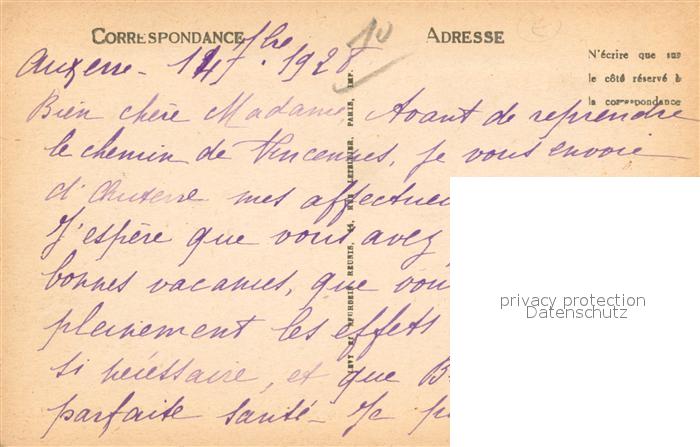 CORRESPONDANCE
ADRESSE
N'écrire que sur
le côté réservé à
la correspondance
Auxerre - 14 7bre 1928
10
Bien chère Madame, Avant de reprendre
le chemin de Vincennes, je vous envoie
d'Auxerre mes affectueu
J'espère que vous avez
bonnes vacances, que vou
pleinement les effets
si nécessaire, et que B
parfaite santé - Je p
LEVY ET NEURDEIN REUNIS, 44, RUE LETELLIER, PARIS, IMP.
privacy protection
Datenschutz